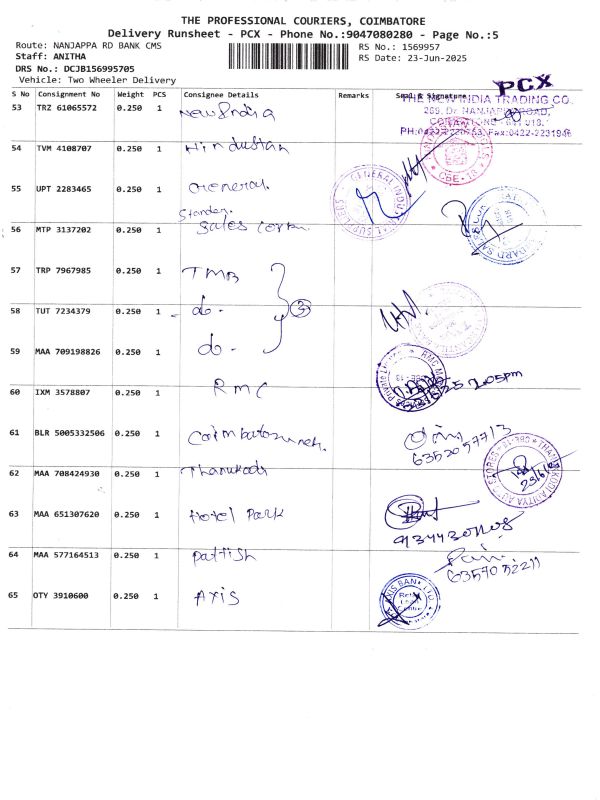 THE PROFESSIONAL COURIERS, COIMBATORE
Delivery Runsheet - PCX - Phone No.:9047080280 - Page No.:5
Route: NANJAPPA RD BANK CMS
RS No.: 1569957
Staff: ANITHA
RS Date: 23-Jun-2025
DRS No.: DCJB156995705
Vehicle: Two Wheeler Delivery
PCX
S No Consignment No Weight PCS Consignee Details Remarks Seal & Signature
THE NEW INDIA TRADING CO.
53 TRZ 61065572 0.250 1 New India
269, Dr. NANJAPPA ROAD,
54 TVM 4108707 0.250 1 Hindustan
CBE-18
55 UPT 2283465 0.250 1 General
GENERAL INDUSTRIAL SUPPLIERS
Standar
56 MTP 3137202 0.250 1 Sales Corn
57 TRP 7967985 0.250 1 TMB
58 TUT 7234379 0.250 1 - do - 3
59 MAA 709198826 0.250 1 do -
60 IXM 3578807 0.250 1 RMC
23/6/25 2.05pm
61 BLR 5005332506 0.250 1
6352057713
62 MAA 708424930 0.250 1
63 MAA 651307620 0.250 1 Hotel Park
64 MAA 577164513 0.250 1 Pattish
65 OTY 3910600 0.250 1 AXIS
AXIS BANK LTD